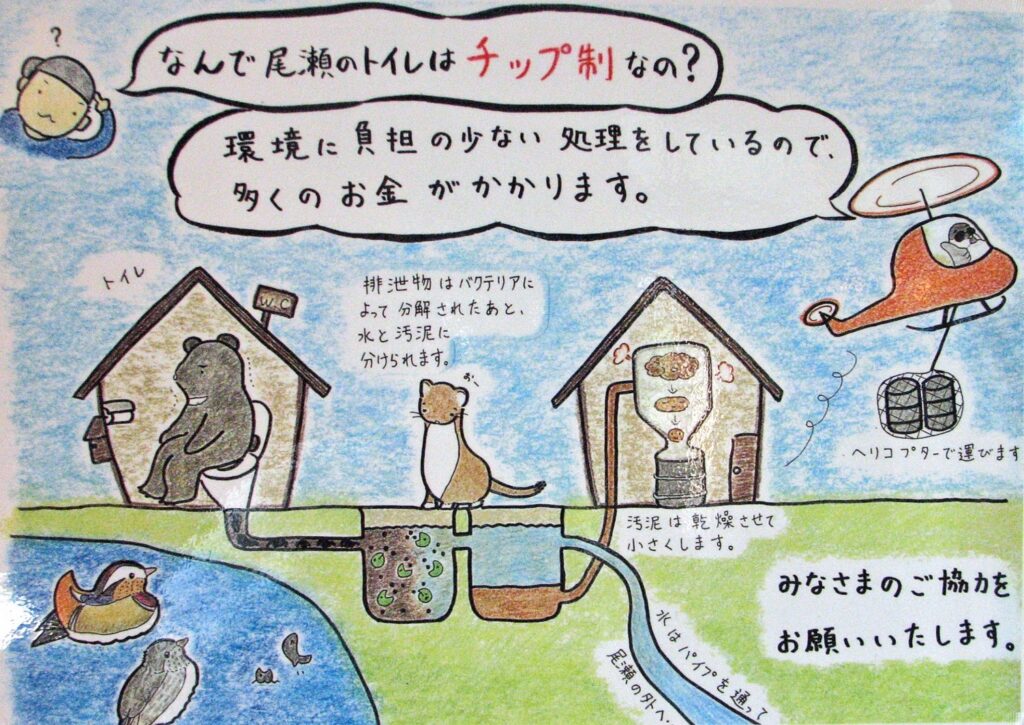 ?
なんで尾瀬のトイレはチップ制なの?
環境に負担の少ない処理をしているので、
多くのお金がかかります。
トイレ
W.C
排泄物はバクテリアに
よって分解されたあと、
水と汚泥に
分けられます。
おー
ヘリコプターで運びます
汚泥は乾燥させて
小さくします。
水はパイプを通って
尾瀬の外へ・・
みなさまのご協力を
お願いいたします。